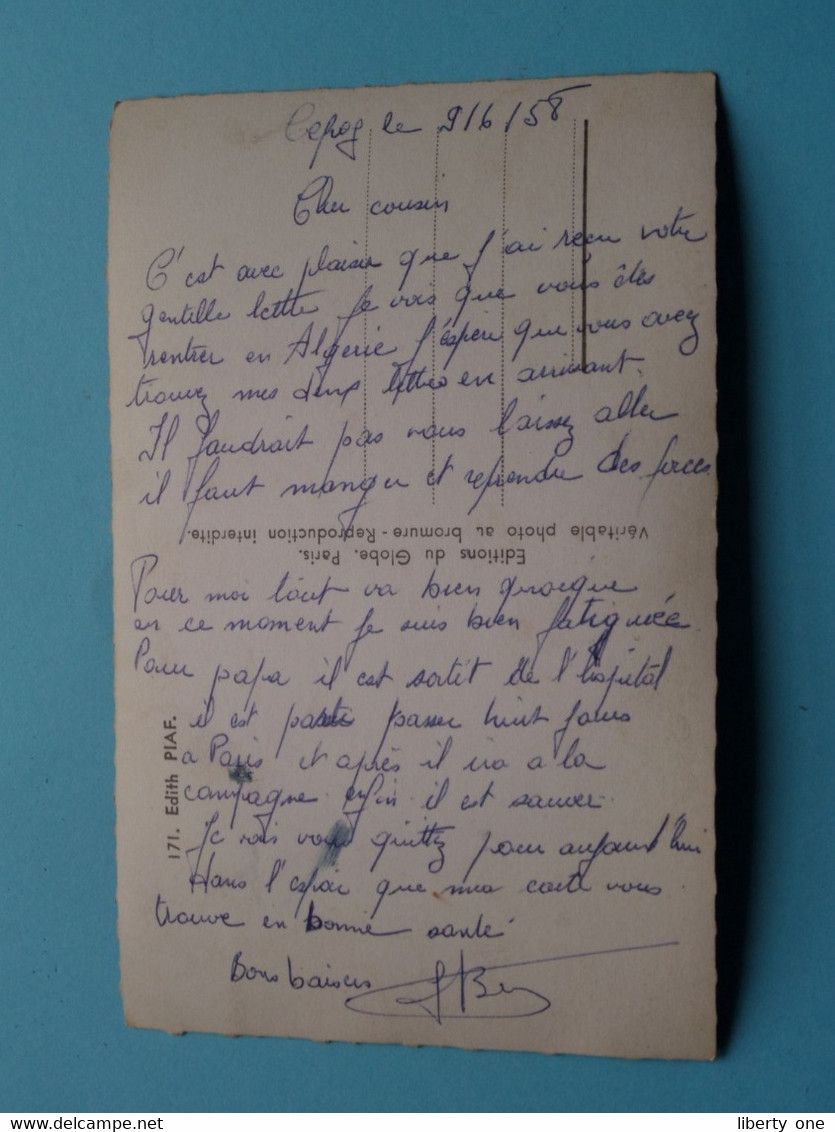 le 9/6/58
Cher cousin
C'est avec plaisir que j'ai recu votre
gentille lettre je vois que vous êtes
rentrer en Algerie j'éspere que vous avez
trouvez mes deux lettres en arrivant.
Il faudrait pas vous laissez aller
il faut manger et reprendre des forces
Véritable photo au bromure - Reproduction interdite.
Editions du Globe. Paris.
Pour moi tout va bien quoique
en ce moment je suis bien fatiguée
Pour papa il est sortit de l'hopitâl
il est partit passer huit jours
a Paris et après il ira a la
campagne enfin il est sauver
Je vais vous quittez pour aujourd'hui
dans l'espoir que ma carte vous
trouve en bonne santé
Bons baisers
171. Edith PIAF.
www.delcampe.net
liberty one